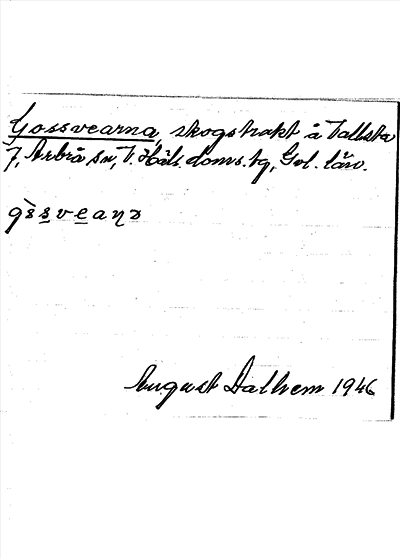 Gossvearna, skogstrakt å Vallsta
7, Arbrå sn, V. Häls. doms. tg, Gvl. län.
gs̀s̲ve̲aṇɔ
August Dalhem 1946